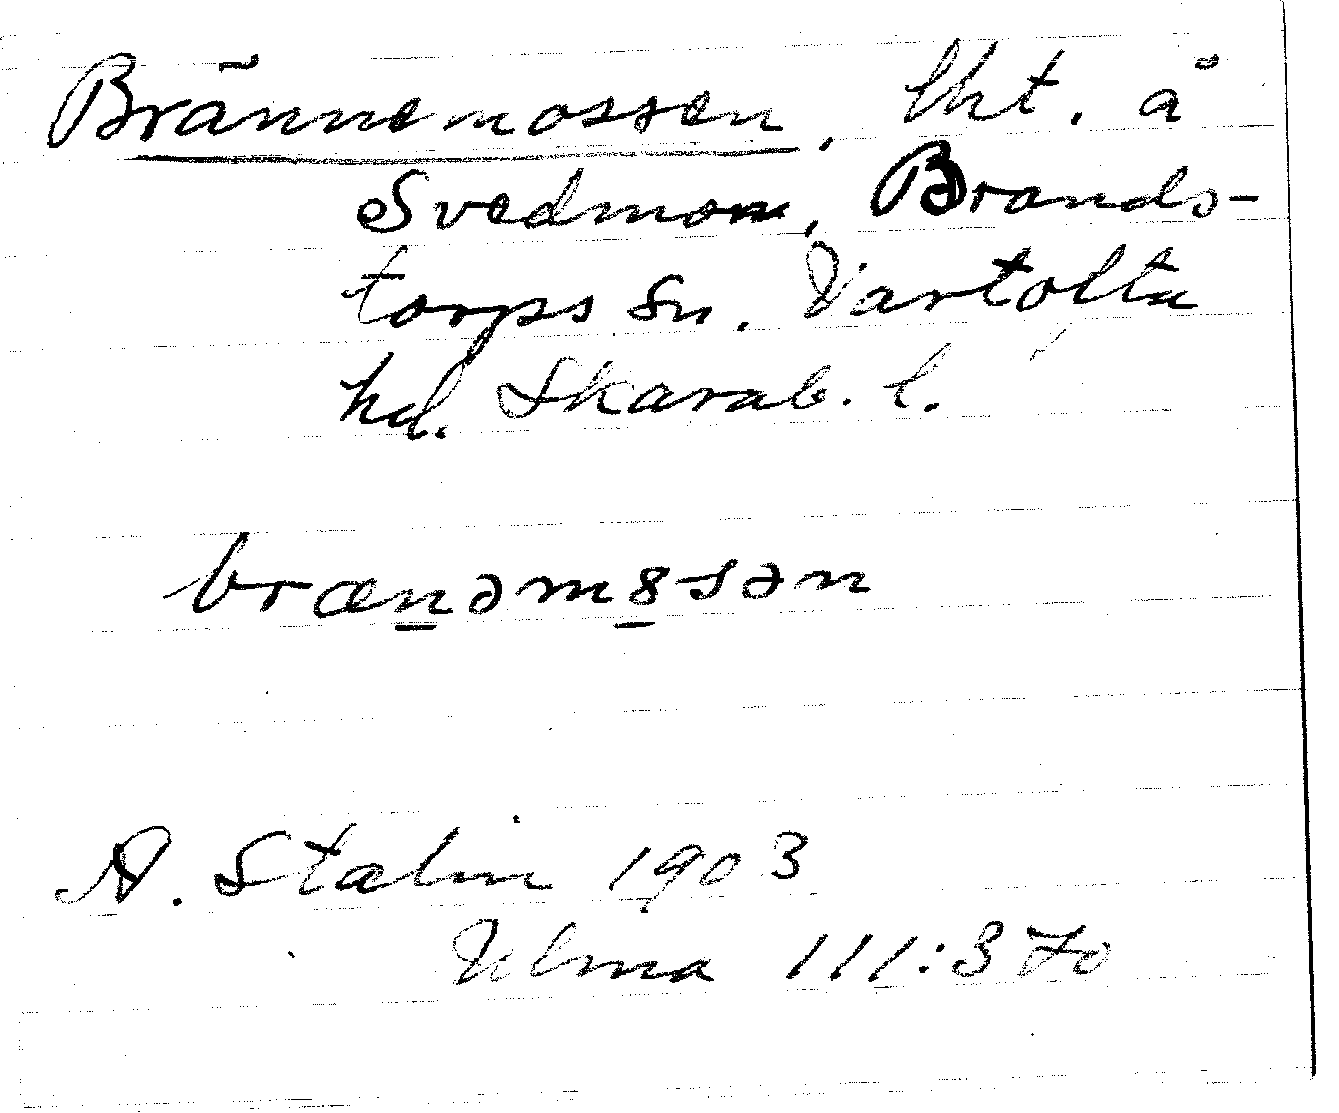 Brännemossen, lht. å
Svedmon, Brands-
torps sn. Vartofta
hd. Skarab. l.
brænəm8sən
A. Stalin 1903
Ulma 111:370